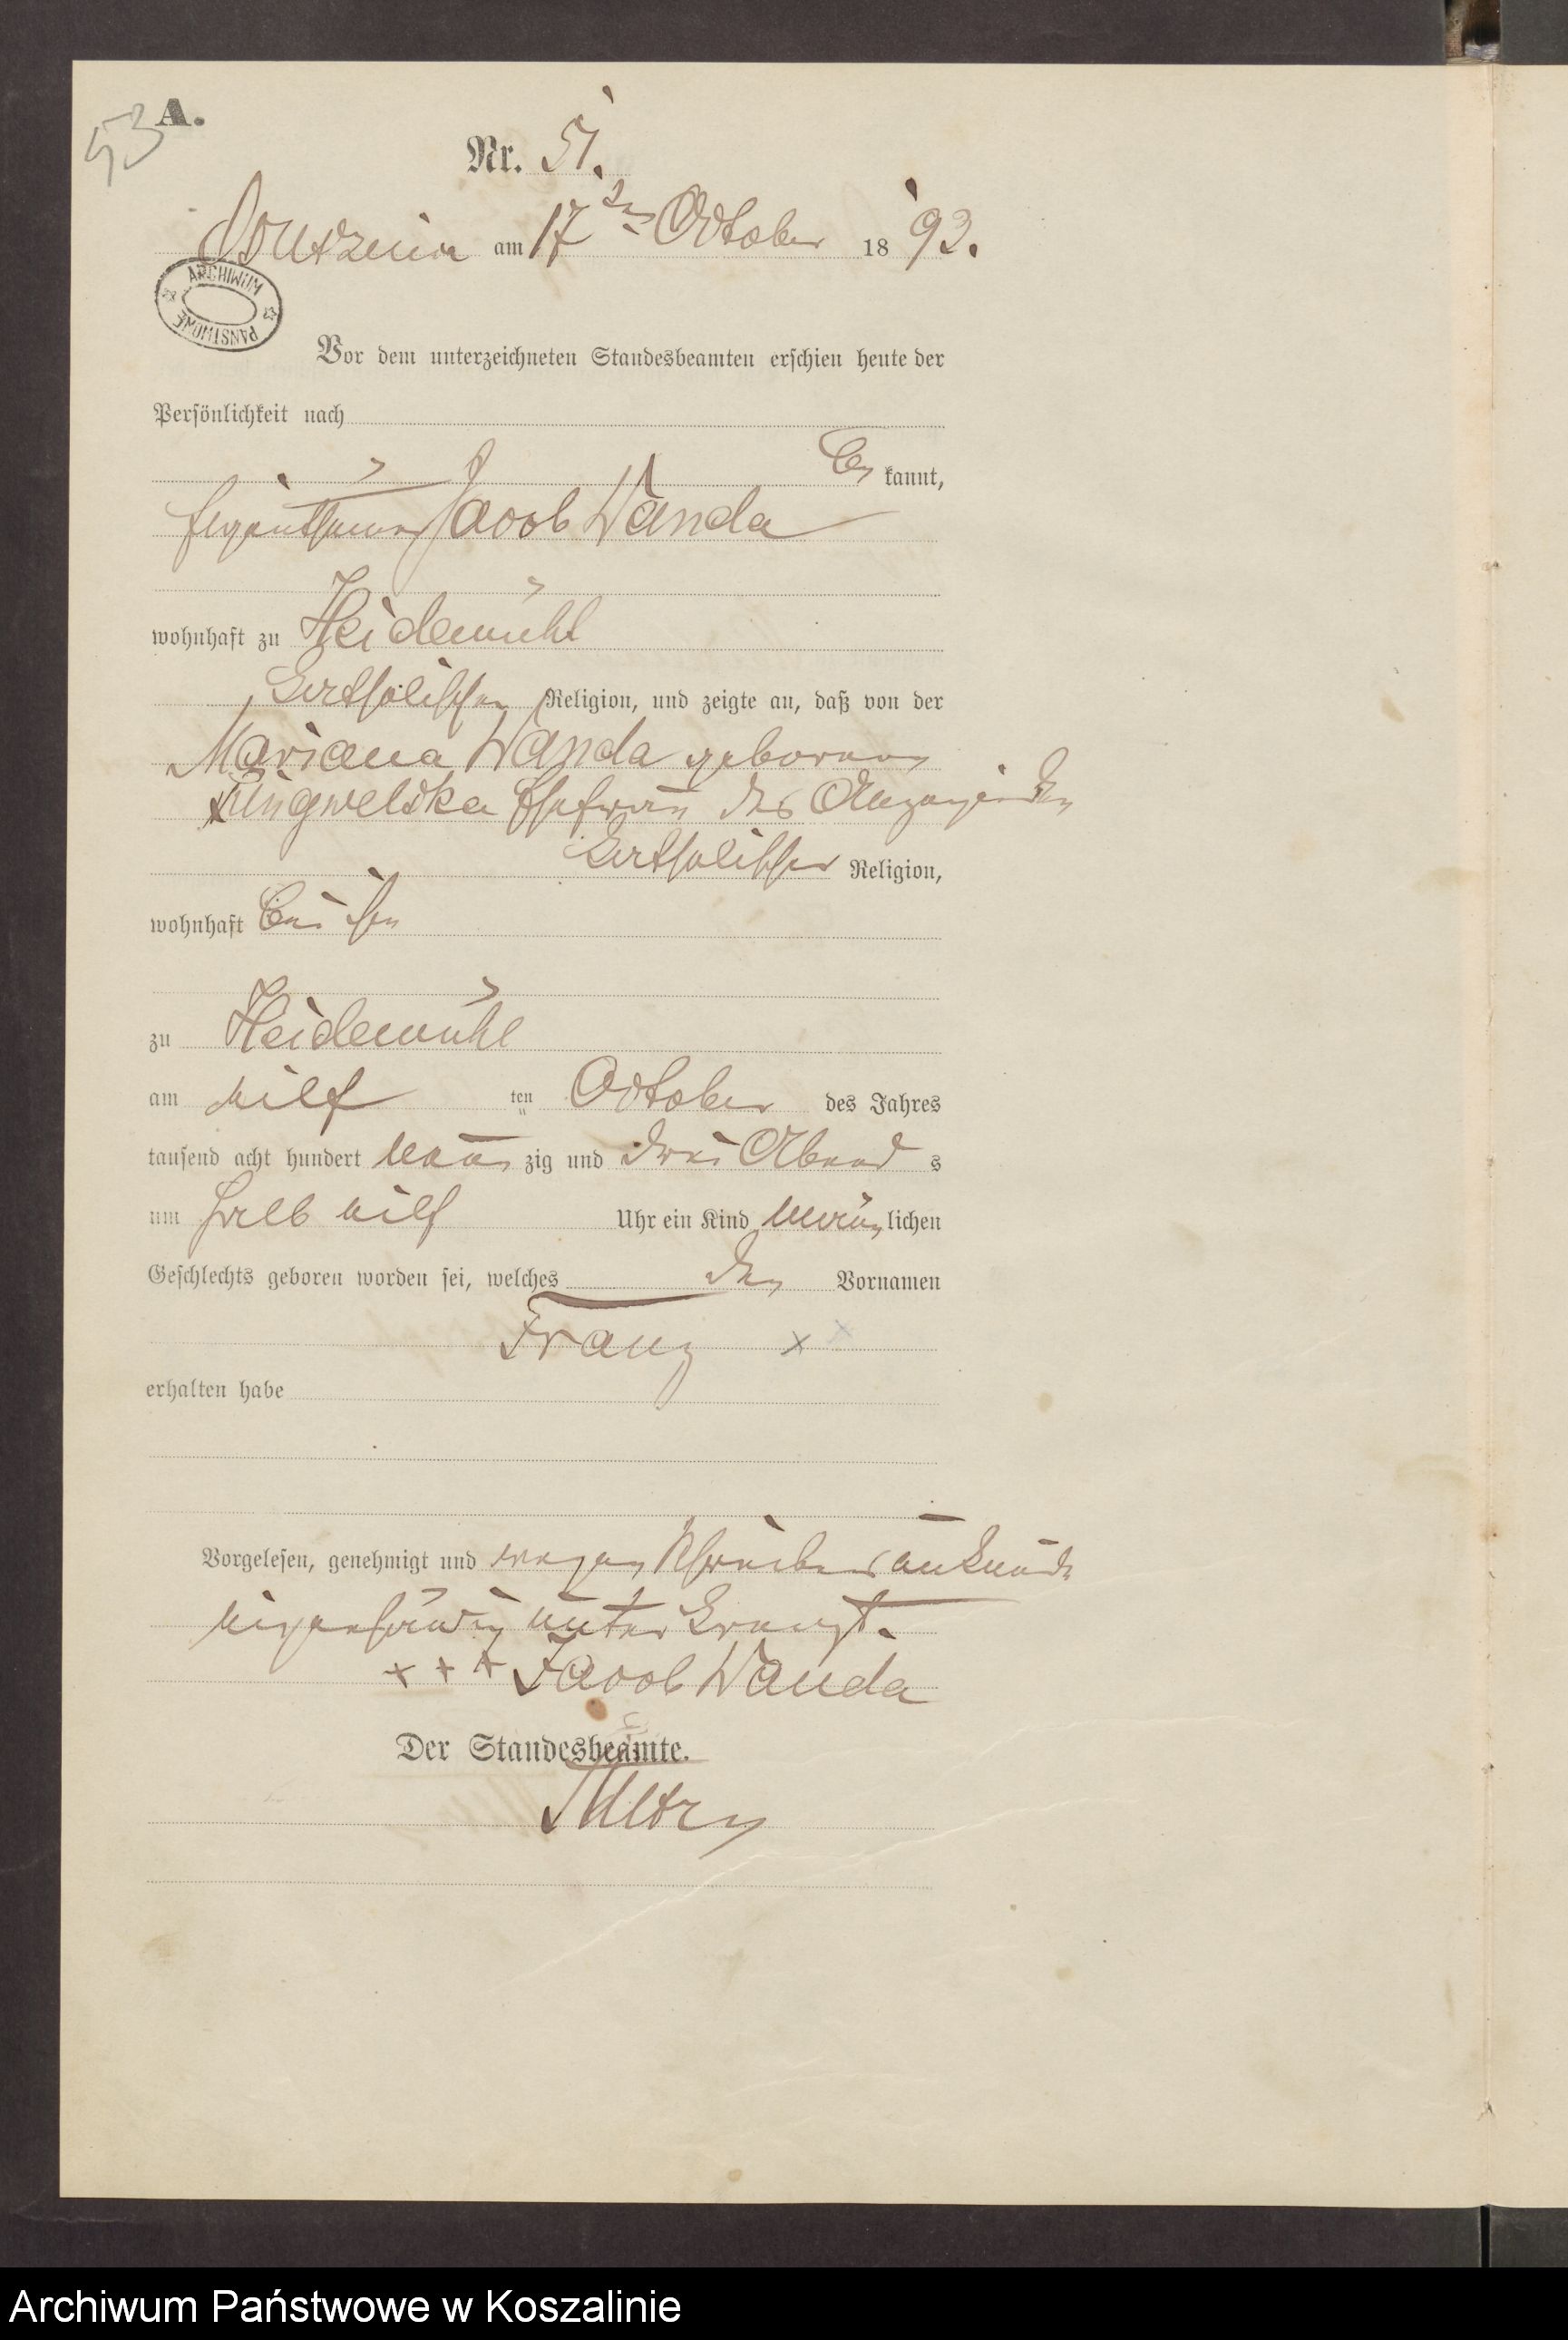 53
A.
Nr. 51.
am 17ten October 1893.
ARCHIWUM PAŃSTWOWE
Vor dem unterzeichneten Standesbeamten erschien heute der
Persönlichkeit nach
be kannt,
Eigenthümer Jacob Wanda
wohnhaft zu Heidemühl
katholischen Religion, und zeigte an, daß von der
Mariana Wanda geborenen
Ehefrau des Anzeigenden
katholischer Religion,
wohnhaft bei ihm
zu Heidemühl
am eilf ten October des Jahres
tausend acht hundert neun zig und drei Abend s
um halb eilf Uhr ein Kind männ lichen
Geschlechts geboren worden sei, welches den Vornamen
Franz x x
erhalten habe
Vorgelesen, genehmigt und wegen Schreibensunkunde
eigenhändig unterkreuzt.
+ + + Jacob Wanda
Der Standesbeamte.
Archiwum Państwowe w Koszalinie